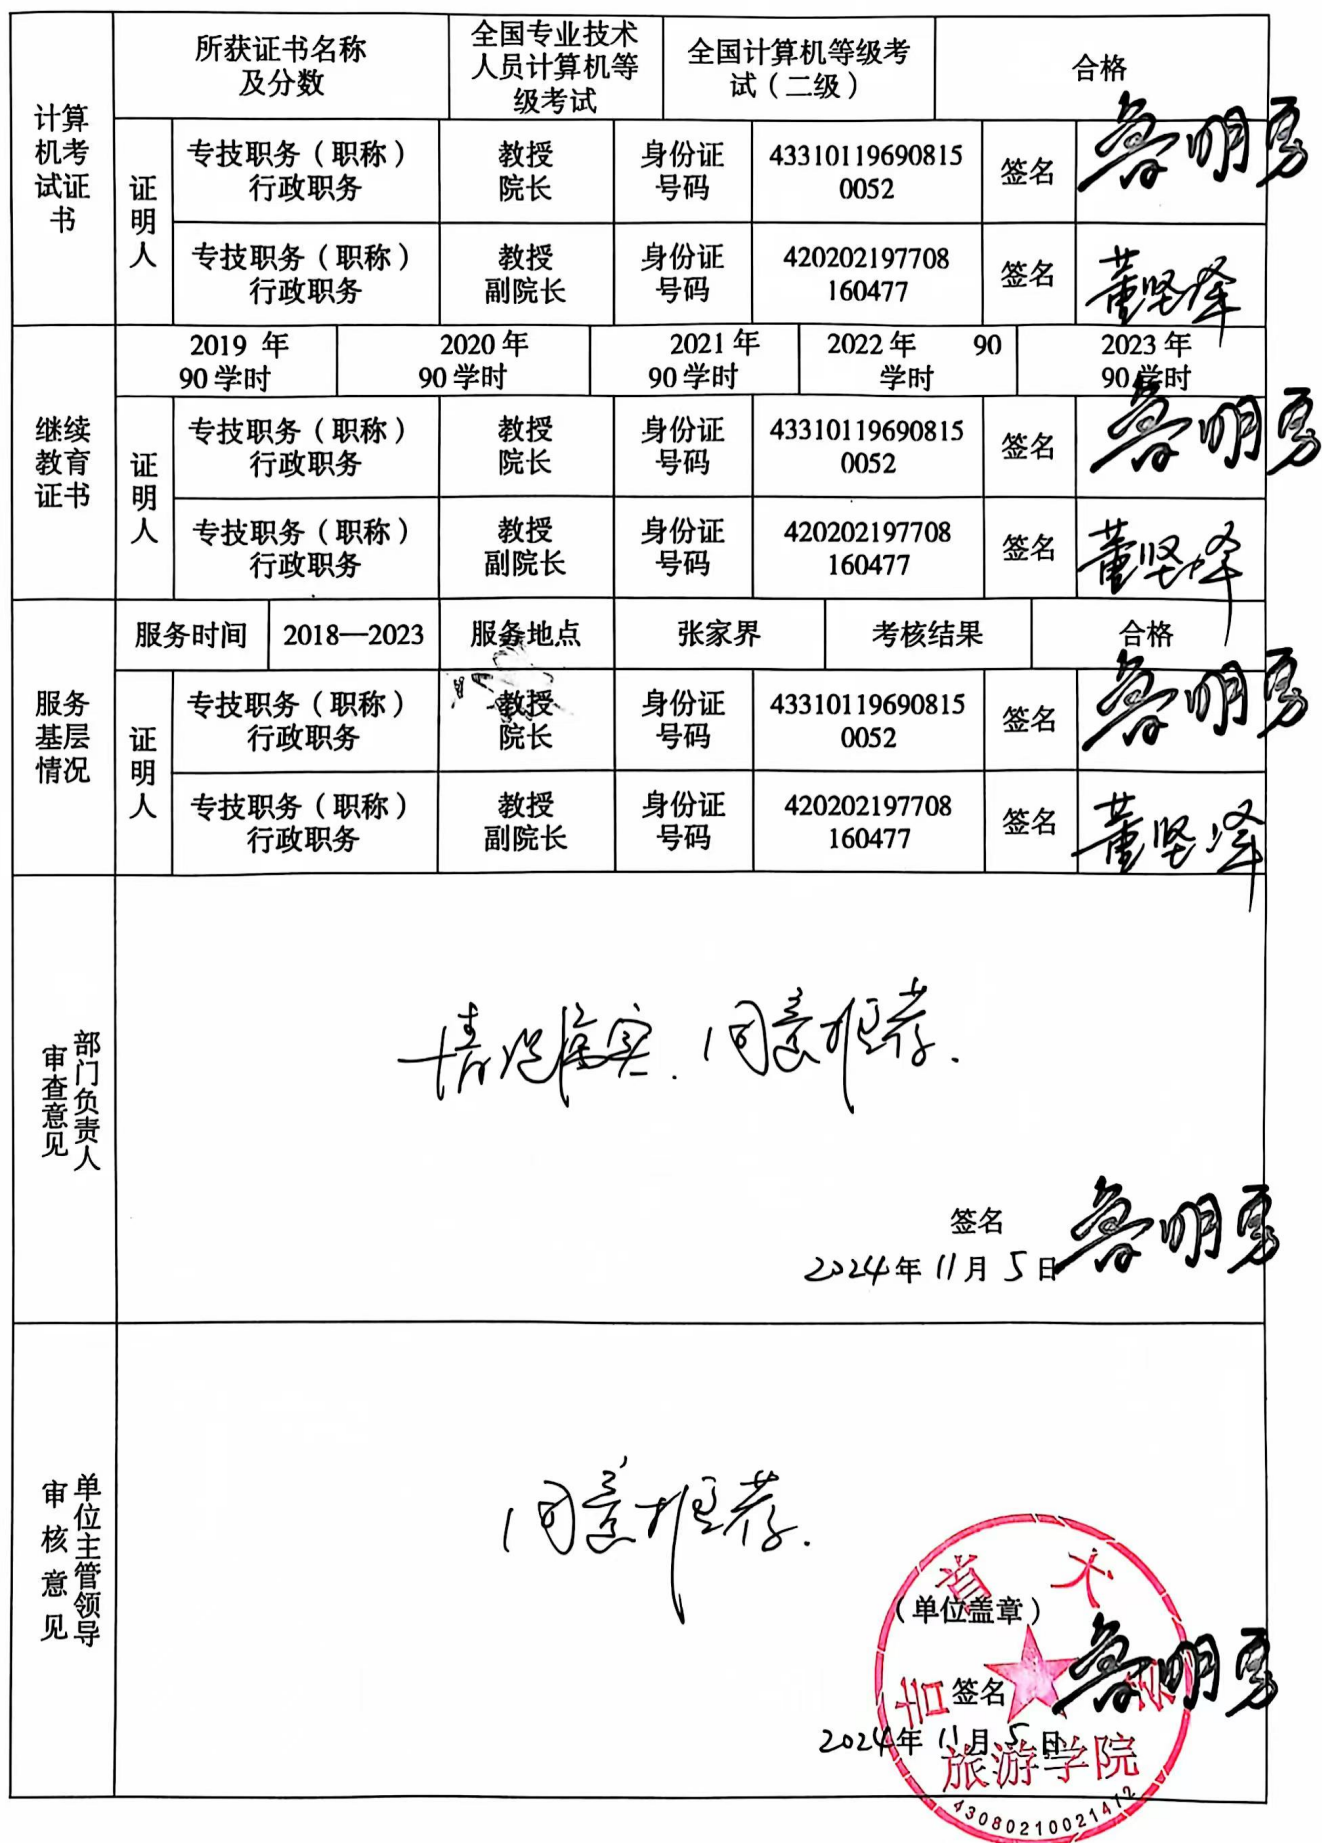 计算
机考
试证
书
所获证书名称
及分数
全国专业技术
人员计算机等
级考试
全国计算机等级考
试（二级）
合格
证
明
人
专技职务（职称）
行政职务
教授
院长
身份证
号码
43310119690815
0052
签名
鲁明勇
专技职务（职称）
行政职务
教授
副院长
身份证
号码
420202197708
160477
签名
董坚峰
继续
教育
证书
2019 年
90 学时
2020 年
90 学时
2021 年
90 学时
2022 年 90
学时
2023 年
90 学时
证
明
人
专技职务（职称）
行政职务
教授
院长
身份证
号码
43310119690815
0052
签名
鲁明勇
专技职务（职称）
行政职务
教授
副院长
身份证
号码
420202197708
160477
签名
董坚峰
服务
基层
情况
服务时间
2018—2023
服务地点
张家界
考核结果
合格
证
明
人
专技职务（职称）
行政职务
教授
院长
身份证
号码
43310119690815
0052
签名
鲁明勇
专技职务（职称）
行政职务
教授
副院长
身份证
号码
420202197708
160477
签名
董坚峰
部门负责人
审查意见
情况属实．同意推荐．
签名
鲁明勇
2024年11月5日
单位主管领导
审核意见
同意推荐．
（单位盖章）
签名
鲁明勇
2024年11月5日
吉首大学
旅游学院
43080210021412